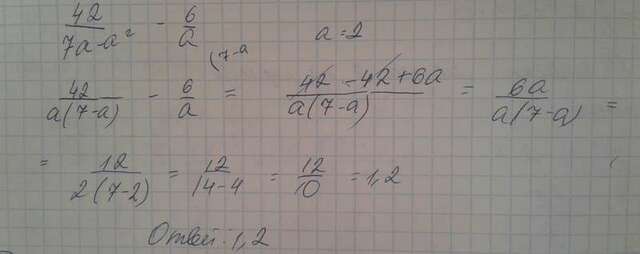 42/(7a-a²) - 6/a     a=2
42/(a(7-a)) - 6/a (7-a = (42-42+6a)/(a(7-a)) = 6a/(a(7-a)) =
= 12/(2(7-2)) = 12/(14-4) = 12/10 = 1,2
Ответ: 1,2